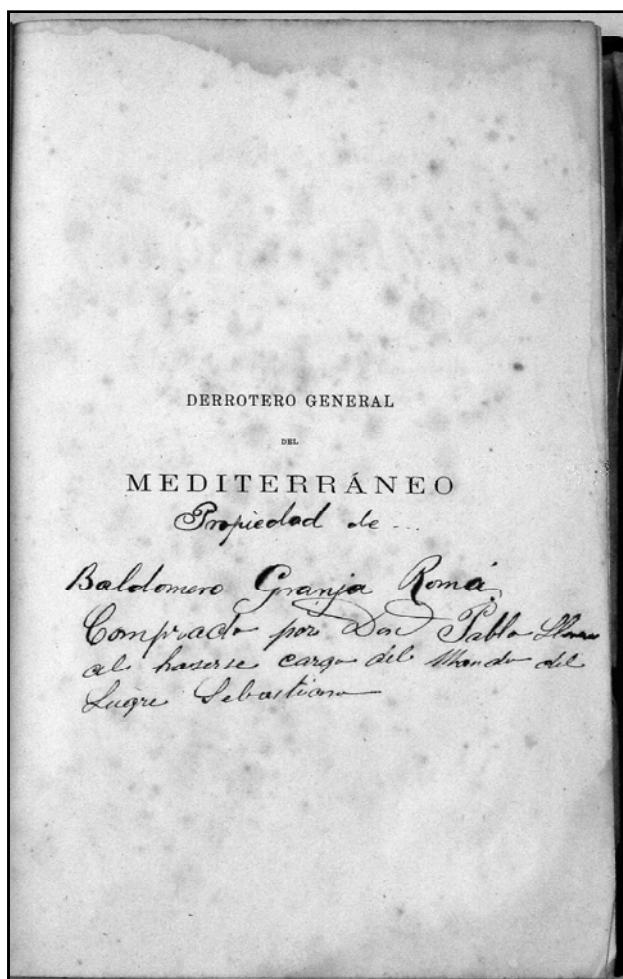 DERROTERO GENERAL
DEL
MEDITERRÁNEO
Propiedad de ...
Baldomero Granja Romá
Comprado por Don Pablo
al haserse cargo del Mando del
Lugre Sebastiana